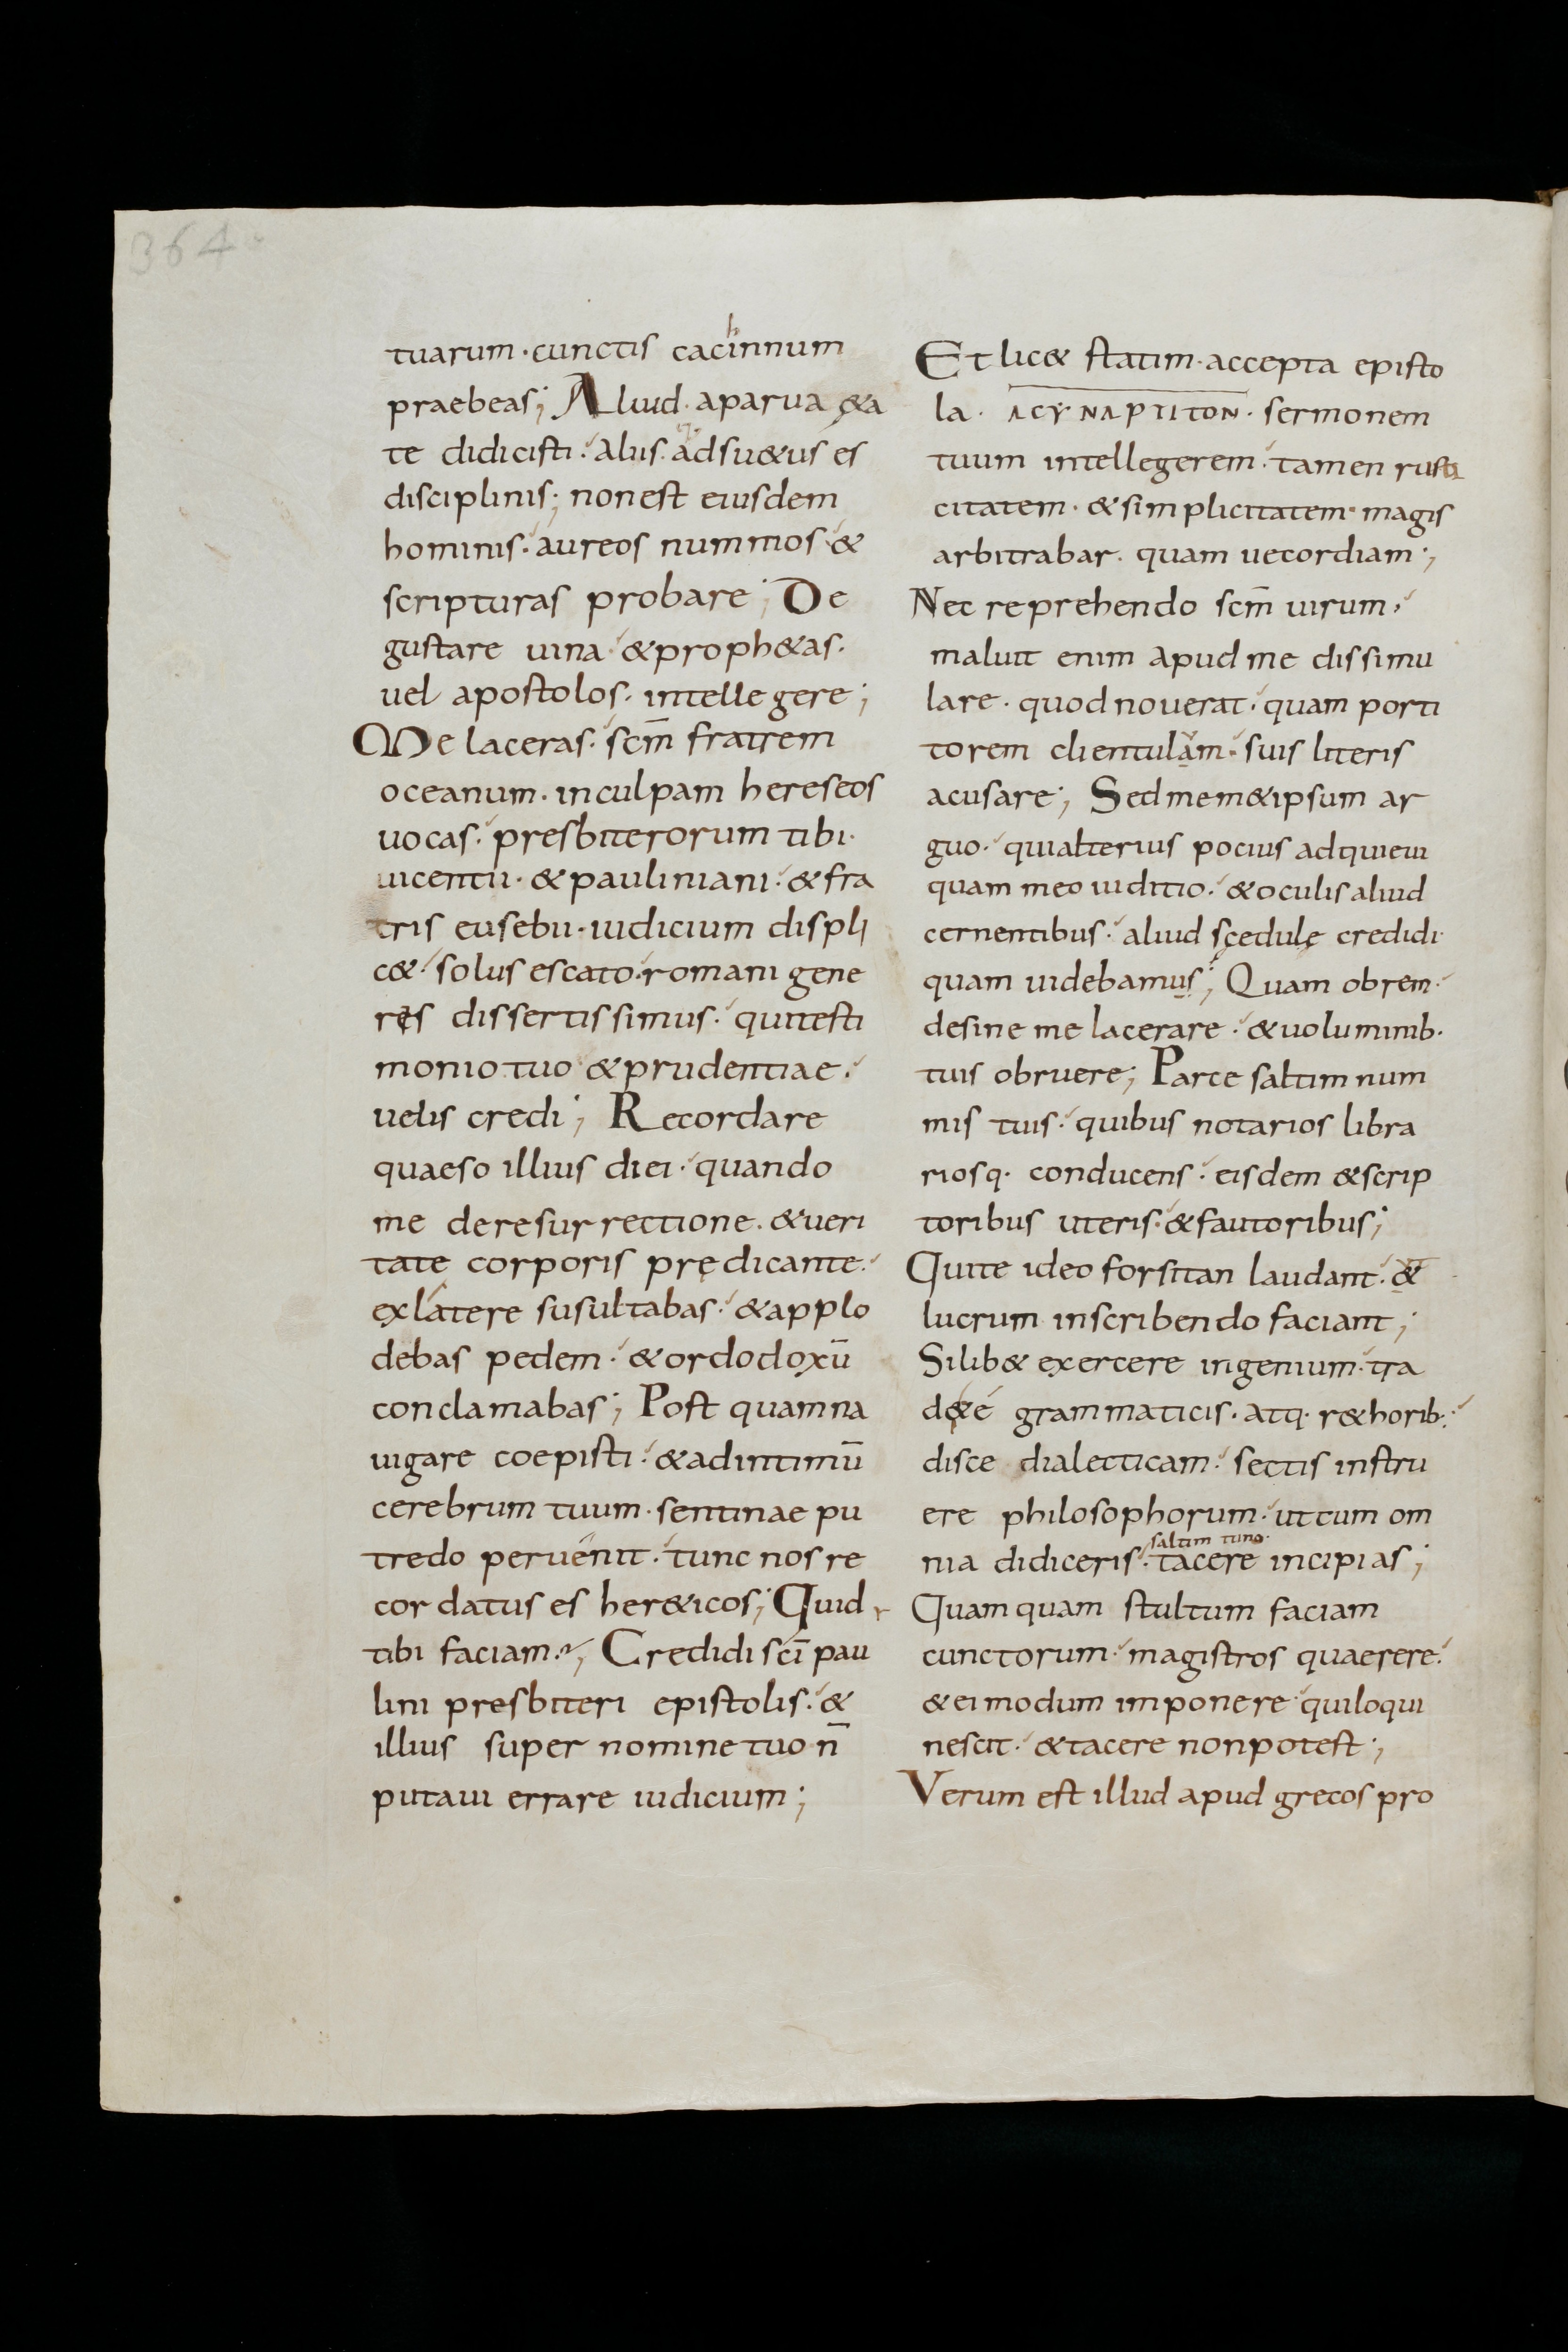 364
tuarum · cunctis cachinnum
praebeas; Aliud · a parua &a
te didicisti · aliis · adsu&us es
disciplinis; non est eiusdem
hominis · aureos nummos · &
scripturas probare; De
gustare uina · & proph&as ·
uel apostolos · intellegere;
Me laceras · scm̄ fratrem
oceanum · in culpam hereseos
uocas · presbiterorum tibi ·
uicentii · & pauliniani · & fra
tris eusebii · iudicium displi
c& · solus es cato · romani gene
ris dissertissimus · qui testi
monio tuo · & prudentiae ·
uelis credi; Recordare
quaeso illius diei · quando
me de resurrectione · & ueri
tate corporis prędicante ·
ex latere susultabas · & applo
debas pedem · & ordodoxū
conclamabas; Post quam na
uigare coepisti · & ad intimū
cerebrum tuum · sentinae pu
tredo peruenit · tunc nos re
cordatus es her&icos; Quid
tibi faciam; Credidi sci̅ pau
lini presbiteri epistolis · &
illius super nomine tuo n̄
putaui errare iudicium;
Et lic& statim · accepta episto
la · ΑCΥΝΑΡΤΙΤΟΝ · sermonem
tuum intellegerem · tamen rusti
citatem · & simplicitatem · magis
arbitrabar · quam uecordiam;
Nec reprehendo scm̄ uirum,
maluit enim apud me dissimu
lare · quod nouerat · quam porti
torem clientulam · suis literis
acusare; Sed mem&ipsum ar
guo · qui alterius pocius adquieui
quam meo iuditio · & oculis aliud
cernentibus · aliud scędulę credidi ·
quam uidebamus; Quam obrem ·
desine me lacerare · & uoluminib·
tuis obruere; Parce saltim num
mis tuis · quibus notarios libra
riosq· conducens · eisdem & scrip
toribus uteris · & fautoribus;
Qui te ideo forsitan laudant · &
lucrum in scribendo faciant;
Si lib& exercere ingenium · tra
de te grammaticis · atq· r&horib·
disce dialecticam · sectis instru
ere philosophorum · ut cum om
saltim tunc
nia didiceris · tacere incipias;
Quam quam stultum faciam
cunctorum · magistros quaerere ·
& ei modum imponere · qui loqui
nescit · & tacere non potest;
Verum est illud apud grecos pro